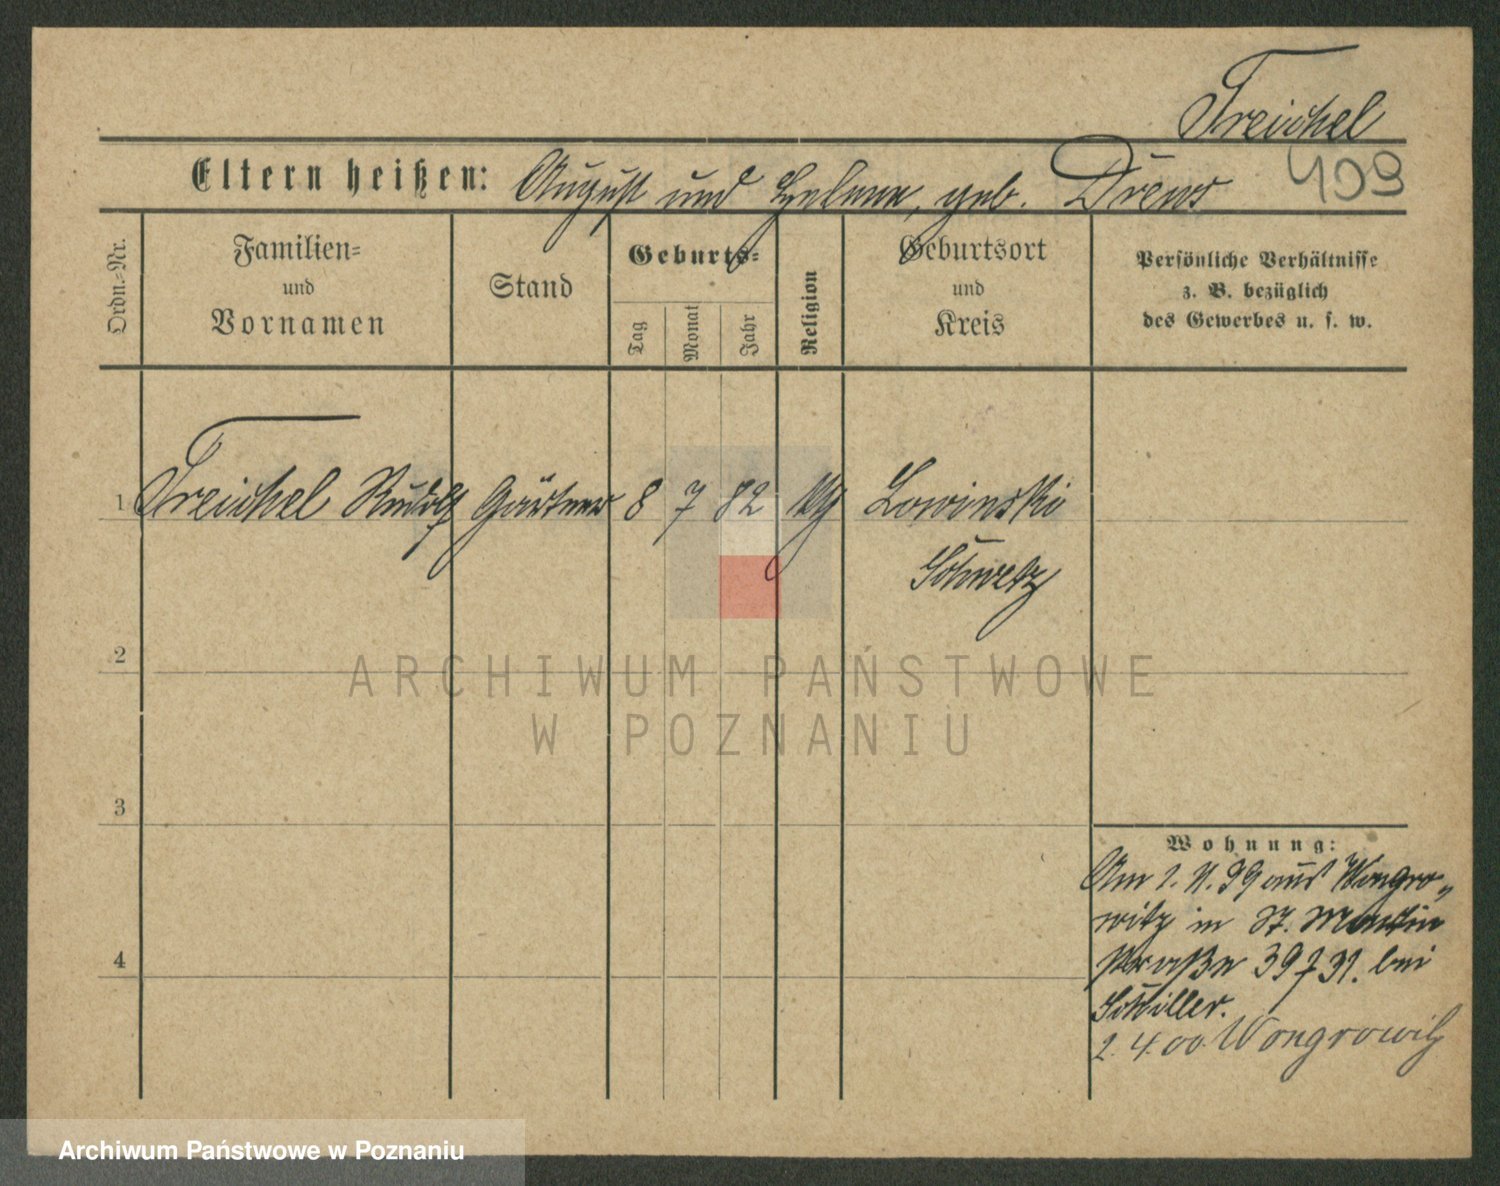 Treichel
409
Eltern heißen: August und Helene, geb. Drews
Ordn.-Nr.
Familien-
und
Vornamen
Stand
Geburts-
Tag
Monat
Jahr
Religion
Geburtsort
und
Kreis
Persönliche Verhältnisse
z. B. bezüglich
des Gewerbes u. s. w.
1 Treichel Rudolf Gärtner 8 7 82 Lowinski
Schwetz
2
3
4
Wohnung:
Am 2. 11. 99 aus Wongro-
witz in St. Martin
straße 39 bei
Schiller.
2. 4. 00 Wongrowitz
ARCHIWUM PAŃSTWOWE
W POZNANIU
Archiwum Państwowe w Poznaniu